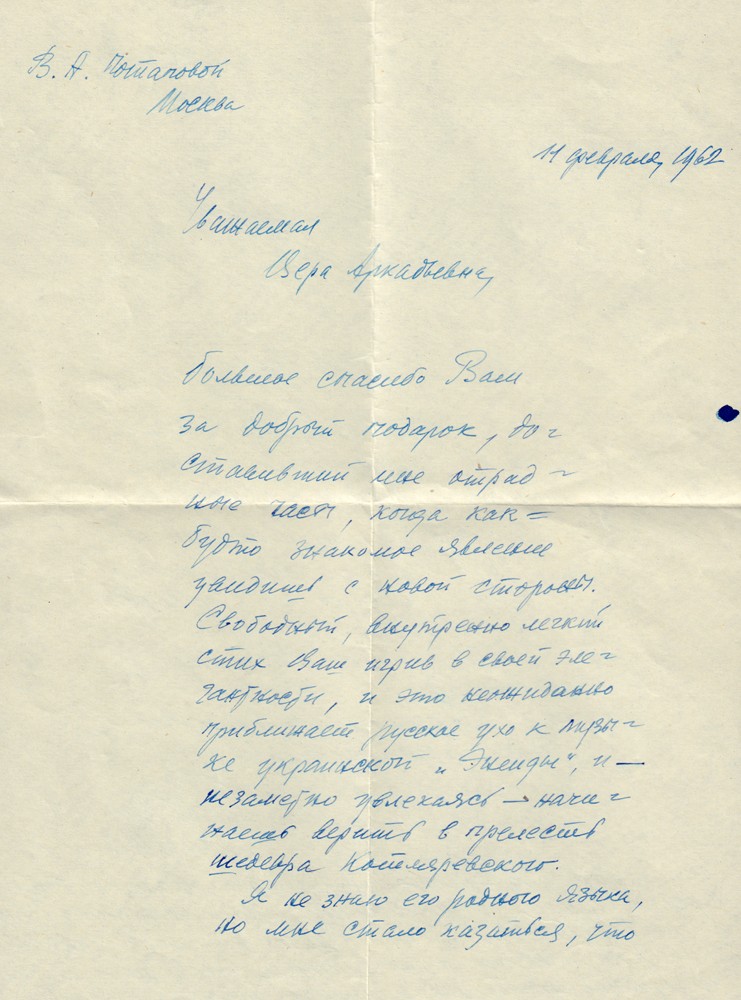 В. А. Потаповой
Москва
11 февраля, 1962
Уважаемая
Вера Аркадьевна,
большое спасибо Вам
за добрый подарок, до=
ставивший мне отрад=
ные часы, когда как=
будто знакомое явление
увидишь с новой стороны.
Свободный, внутренно легкий
стих Ваш игрив в своей эле=
гантности, и это неожиданно
приближает русское ухо к музы=
ке украинской „Энеиды“, и —
незаметно увлекаясь — начи=
наешь верить в прелесть
шедевра Котляревского.
Я не знаю его родного языка,
но мне стало казаться, что